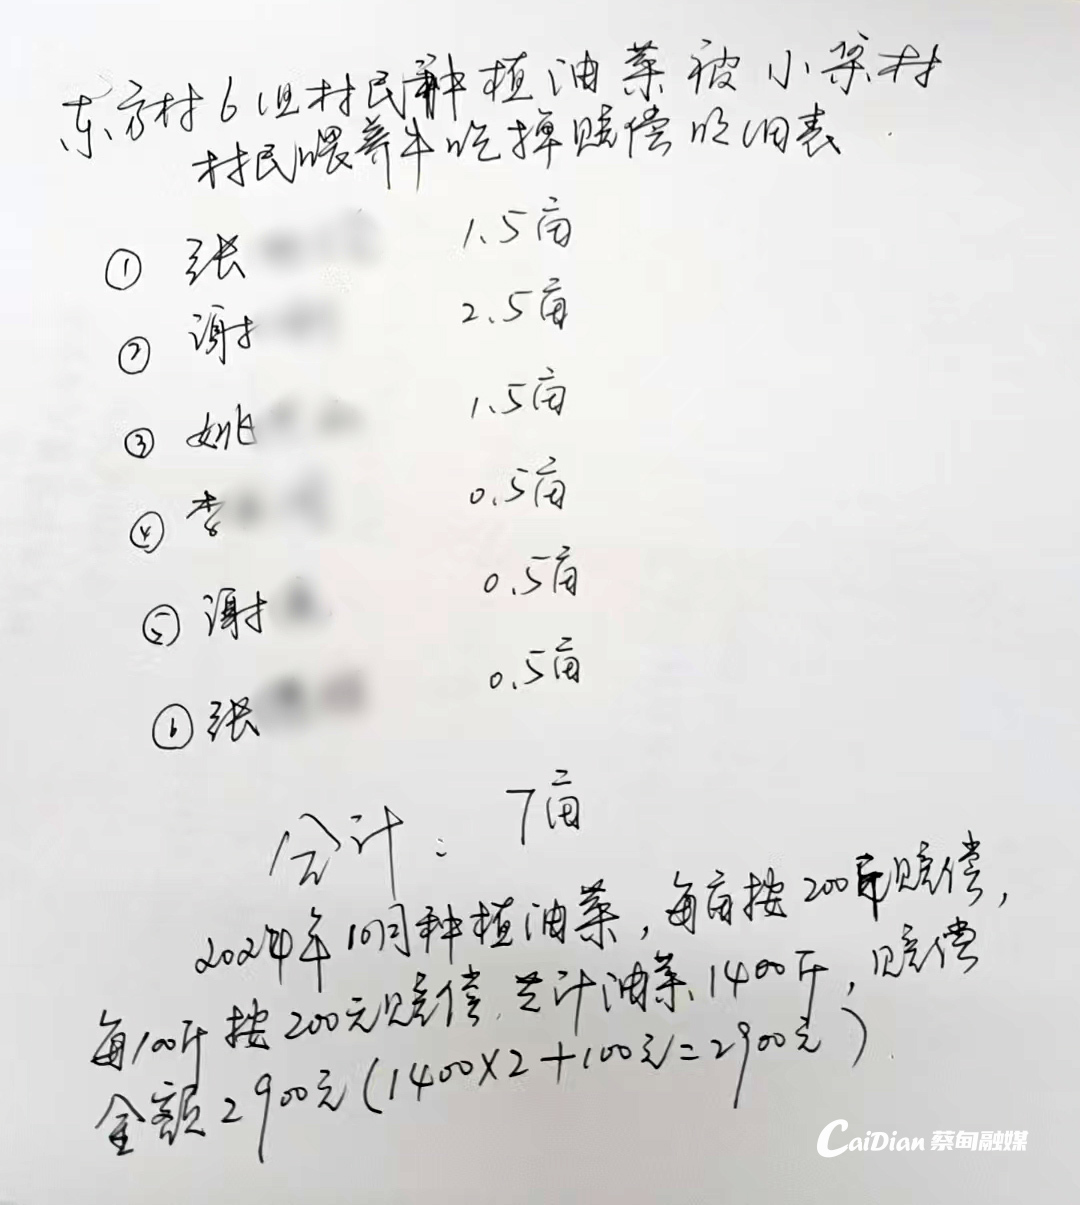 东方村6组村民种植油菜被小梁村
村民喂养牛吃掉赔偿明细表
① 张 1.5亩
② 谢 2.5亩
③ 姚 1.5亩
④ 李 0.5亩
⑤ 谢 0.5亩
⑥ 张 0.5亩
合计: 7亩
2024年10月种植油菜,每亩按200斤赔偿,
每100斤按200元赔偿.共计油菜1400斤,赔偿
金额2900元(1400×2+100元=2900元)
CaiDian 蔡甸融媒